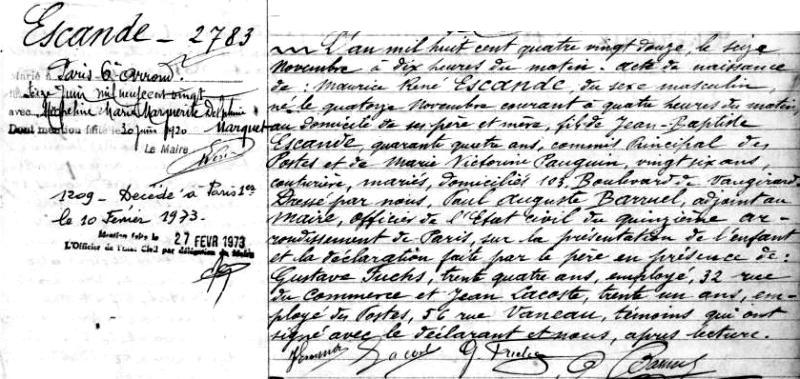 Escande - 2783
Marié à Paris 6e Arrond.
le seize Juin mil neuf cent vingt
avec Madeleine Marie Marguerite Delphine
Marquet
Dont mention faite le 30 juin 1920
Le Maire
1209 - Décédé à Paris 1er
le 10 Février 1973.
Mention faite le 27 FEVR 1973
L'Officier de l'Etat Civil par délégation du Maire
L'an mil huit cent quatre vingt douze, le seize
Novembre à dix heures du matin: acte de naissance
de: Maurice René Escande, du sexe masculin,
né le quatorze Novembre courant à quatre heures du matin,
au domicile de ses père et mère, fils de Jean-Baptiste
Escande, quarante quatre ans, commis Principal des
Postes et de Marie Victorine Pauquin, vingt six ans,
couturière, mariés, domiciliés 103, Boulevard de Vaugirard.
Dressé par nous, Paul Auguste Barruel, adjoint au
Maire, officier de l'Etat civil du quinzième ar-
rondissement de Paris, sur la présentation de l'enfant
et la déclaration faite par le père en présence de:
Gustave Fuchs, trente quatre ans, employé, 32 rue
du Commerce et Jean Lacoste, trente un ans, em-
ployé des Postes, 56 rue Vaneau, témoins qui ont
signé avec le déclarant et nous, après lecture.